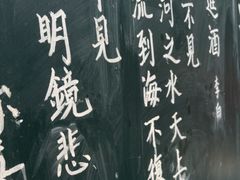 進酒 李白
不見
河之水天上
流到海不復
不見
明鏡悲